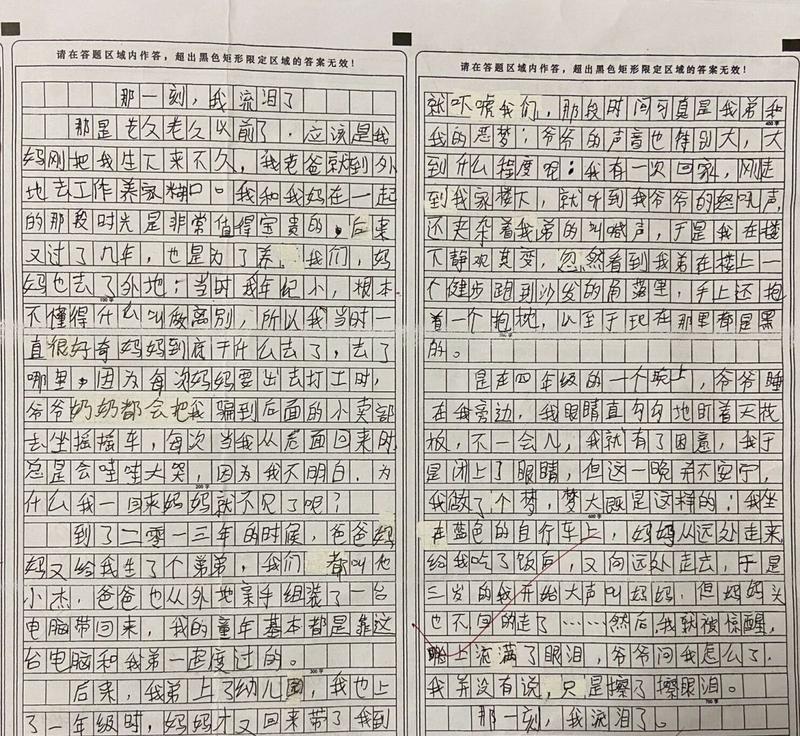 请在答题区域内作答，超出黑色矩形限定区域的答案无效！
那一刻，我流泪了
那是老久老久以前了，应该是我
妈刚把我生下来不久，我老爸就到外
地去工作养家糊口。我和我妈在一起
的那段时光是非常值得宝贵的。后来
又过了几年，也是为了养我们，妈
妈也去了外地；当时我年纪小，根本
100字
不懂得什么叫做离别，所以我当时一
直很好奇妈妈到底干什么去了，去了
哪里，因为每次妈妈要出去打工时，
爷爷奶奶都会把我骗到后面的小卖部
去坐摇摇车，每次当我从后面回来时，
总是会哇哇大哭，因为我不明白，为
200字
什么我一回来妈妈就不见了呢？
到了二零一三年的时候，爸爸妈
妈又给我生了个弟弟，我们都叫他
小杰，爸爸也从外地亲手组装了一台
电脑带回来，我的童年基本都是靠这
台电脑和我弟一起度过的。
300字
后来，我弟上了幼儿园，我也上
了一年级时，妈妈才又回来带了我到
请在答题区域内作答，超出黑色矩形限定区域的答案无效！
就吓唬我们，那段时间可真是我弟和
400字
我的恶梦；爷爷的声音也特别大，大
到什么程度呢：我有一次回家，刚走
到我家楼下，就听到我爷爷的怒吼声，
还夹杂着我弟的叫喊声，于是我在楼
下静观其变，忽然看到我弟在楼上一
个健步跑到沙发的角落里，手上还抱
着一个抱枕，以至于现在那里都是黑
的。
是在四年级的一个晚上，爷爷睡
在我旁边，我眼睛直勾勾地盯着天花
板，不一会儿，我就有了困意，我于
是闭上了眼睛，但这一晚并不安宁，
我做了个梦，梦大既是这样的：我坐
600字
在蓝色的自行车上，妈妈从远处走来，
给我吃了饭后，又向远处走去，于是
三岁的我开始大声叫妈妈，但妈妈头
也不回的走了……然后，我就被惊醒，
上流满了眼泪，爷爷问我怎么了，
我并没有说，只是擦了擦眼泪。
700字
那一刻，我流泪了。